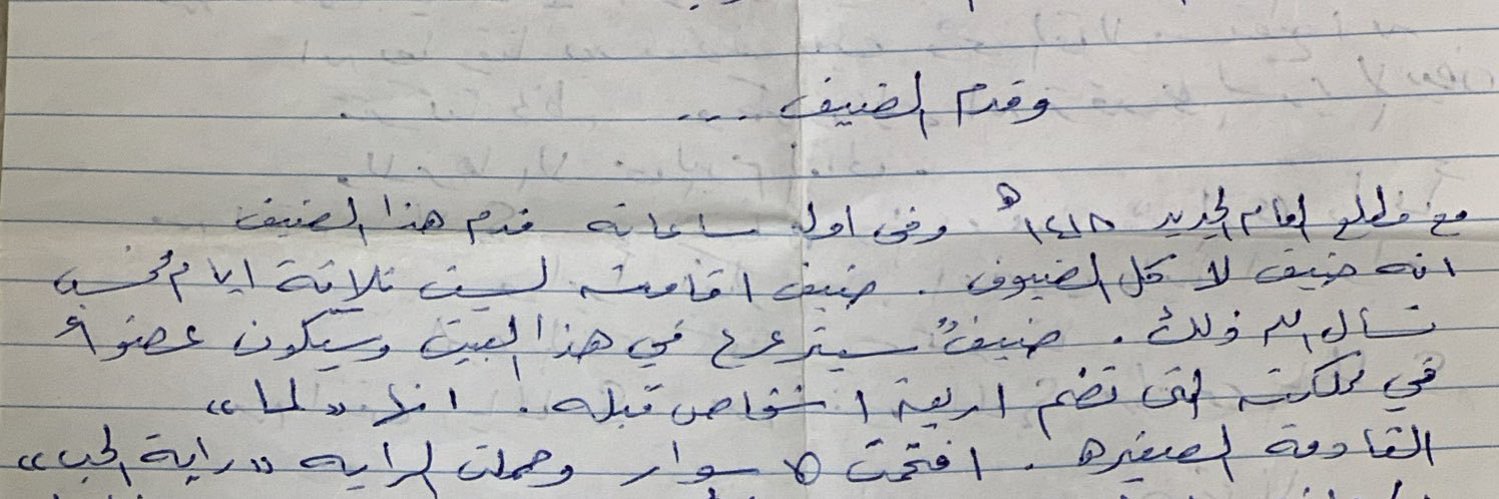 وقدم الضيف ...
مع مطلع العام الجديد ١٤١٨ هـ وفي اول ساعاته قدم هذا الضيف
انه ضيف لا كل الضيوف . ضيف اقامته ليست ثلاثة ايام فحسب
نسأل الله ذلك . ضيفٌ سيترعرع في هذا البيت وسيكون عضواً
في مملكته التي تضم اربعة اشخاص قبله . انها " لما "
القادمة الصغيره . اقتحمت الاسوار وحملت الرايه " راية الحب "